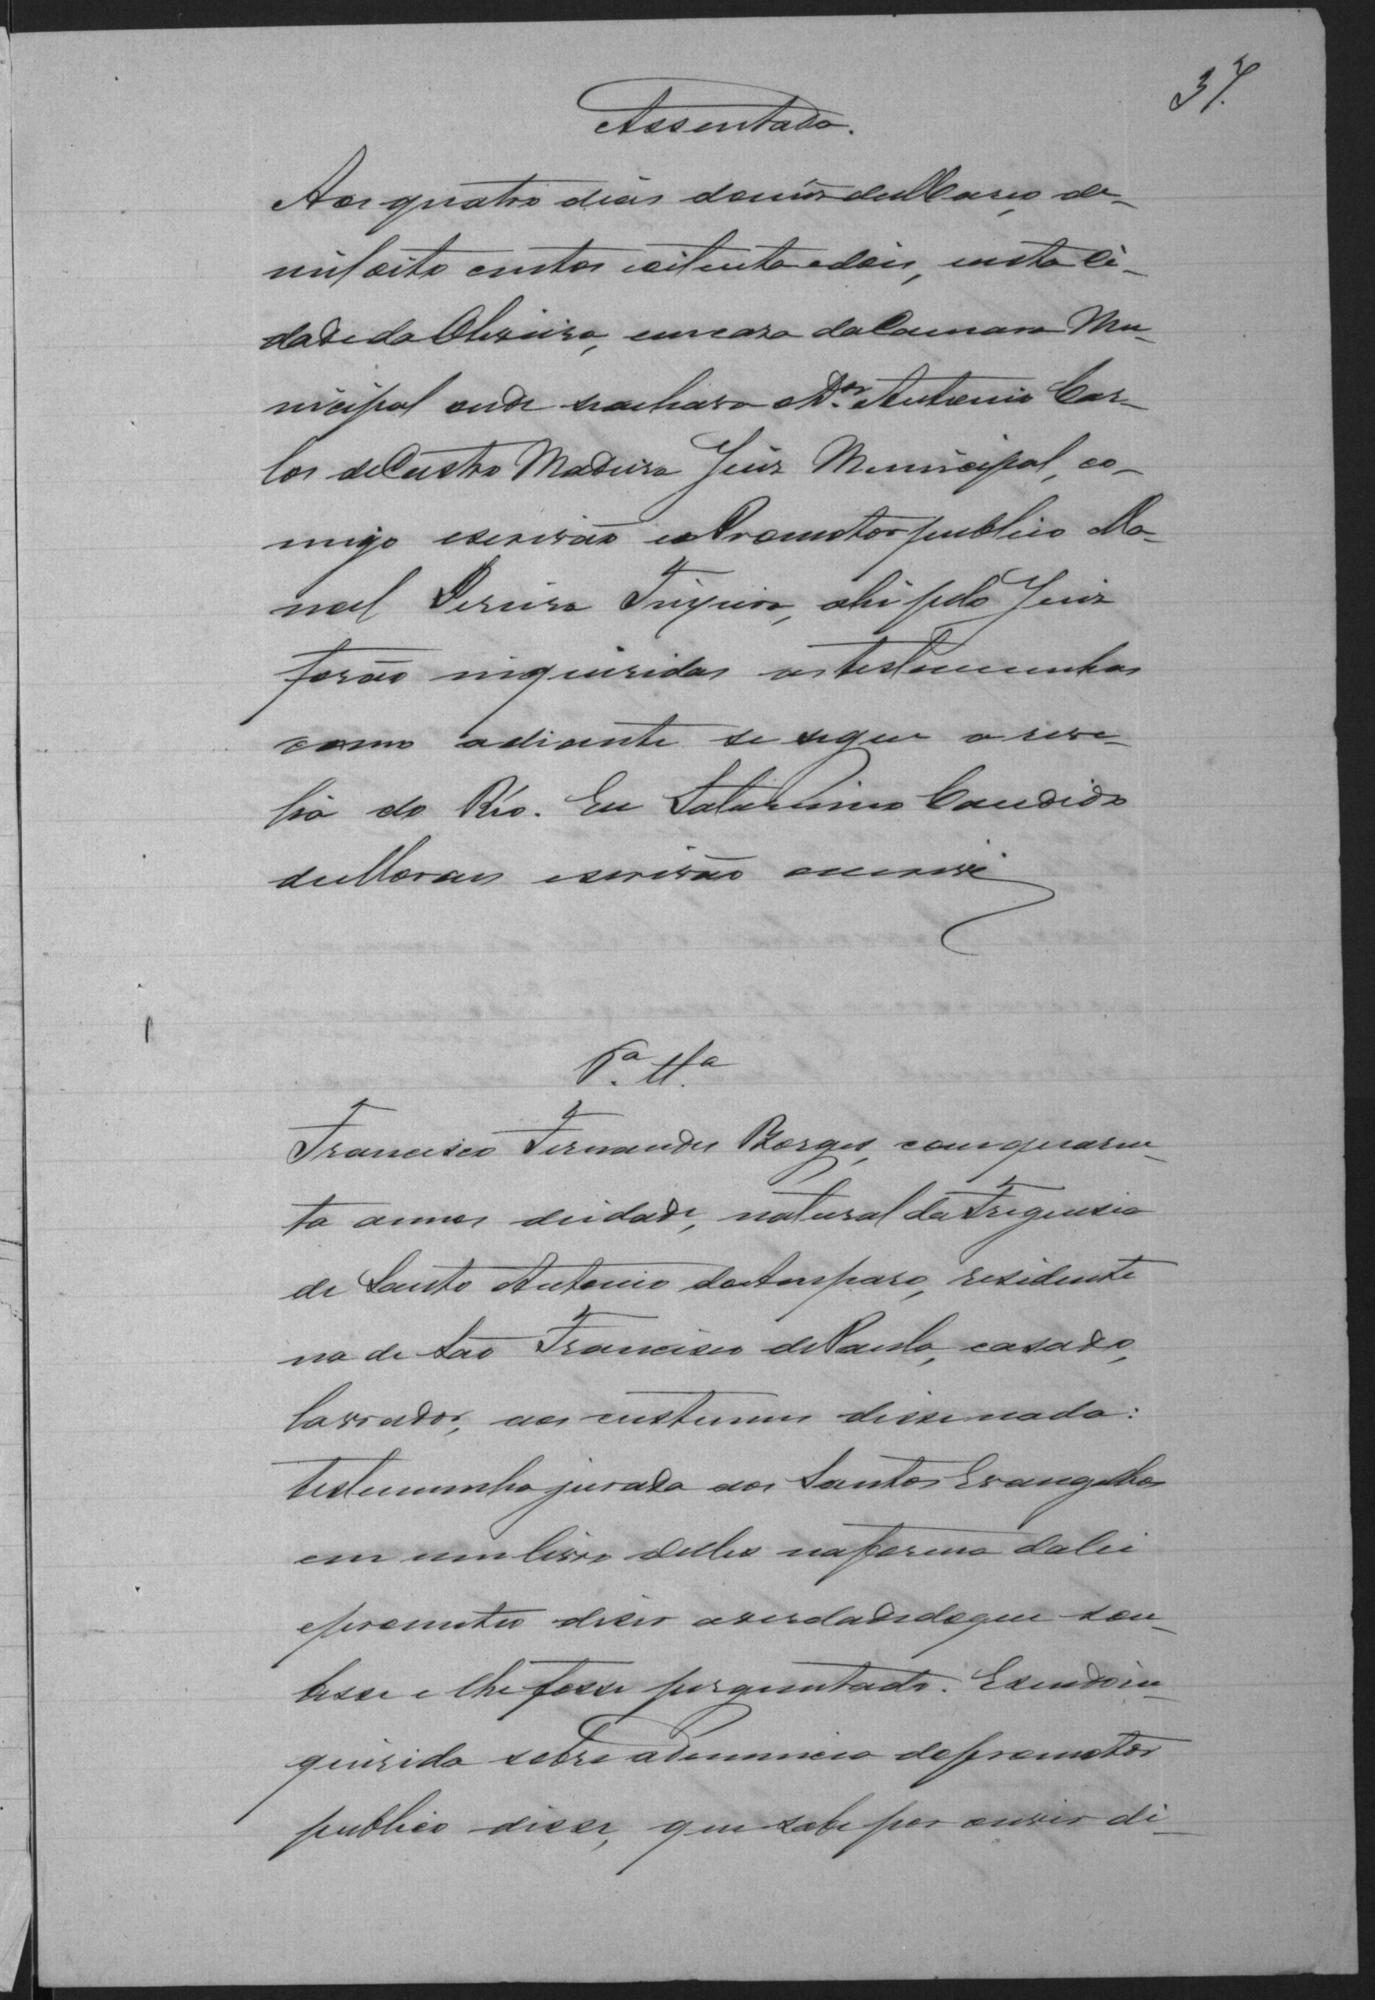 37.
Assentada.
Aos quatro dias do mes de Março de
mil oito centos e oitenta e dois, nesta Ci-
dade da Oliveira, em casa da Camara Mu-
nicipal onde se achava o Dor. Antonio Car-
los de Castro Madeira Juiz Municipal, co-
migo escrivão e o Promotor publico Ma-
noel Pereira Teixeira, ahi pelo Juiz
forão inquiridas as testemunhas
como adiante se segue a reve-
lia do Réo. Eu Saturnino Candido
de Moraes escrivão escrevi
1a. tta.
Francisco Fernandes Borges, com quaren-
ta annos de idade, natural da Freguesia
de Santo Antonio do Amparo, residente
na de São Francisco de Paula, casado,
lavrador, aos custumes disse nada:
testemunha jurada aos Santos Evangelhos
em um livro delles na forma da lei
e prometeo diser a verdade do que sou-
besse e lhe fosse perguntado. E sendo in-
querida sobre a denuncia do promotor
publico disse, que sabe por ouvir di-